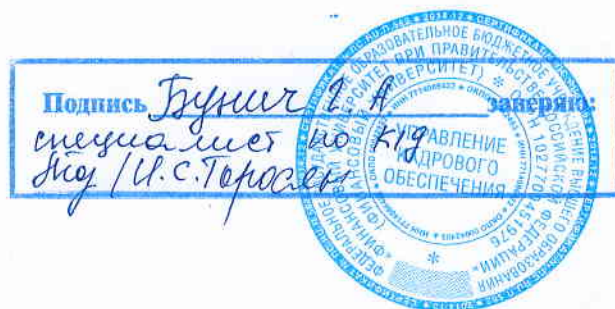 Подпись Бунич Г А заверяю:
специалист по КДД
/И.С. Торосян
УПРАВЛЕНИЕ
КАДРОВОГО
ОБЕСПЕЧЕНИЯ
ФЕДЕРАЛЬНОЕ ОБРАЗОВАТЕЛЬНОЕ БЮДЖЕТНОЕ УЧРЕЖДЕНИЕ ВЫСШЕГО ОБРАЗОВАНИЯ
«ФИНАНСОВЫЙ УНИВЕРСИТЕТ ПРИ ПРАВИТЕЛЬСТВЕ РОССИЙСКОЙ ФЕДЕРАЦИИ»
(ФИНАНСОВЫЙ УНИВЕРСИТЕТ)